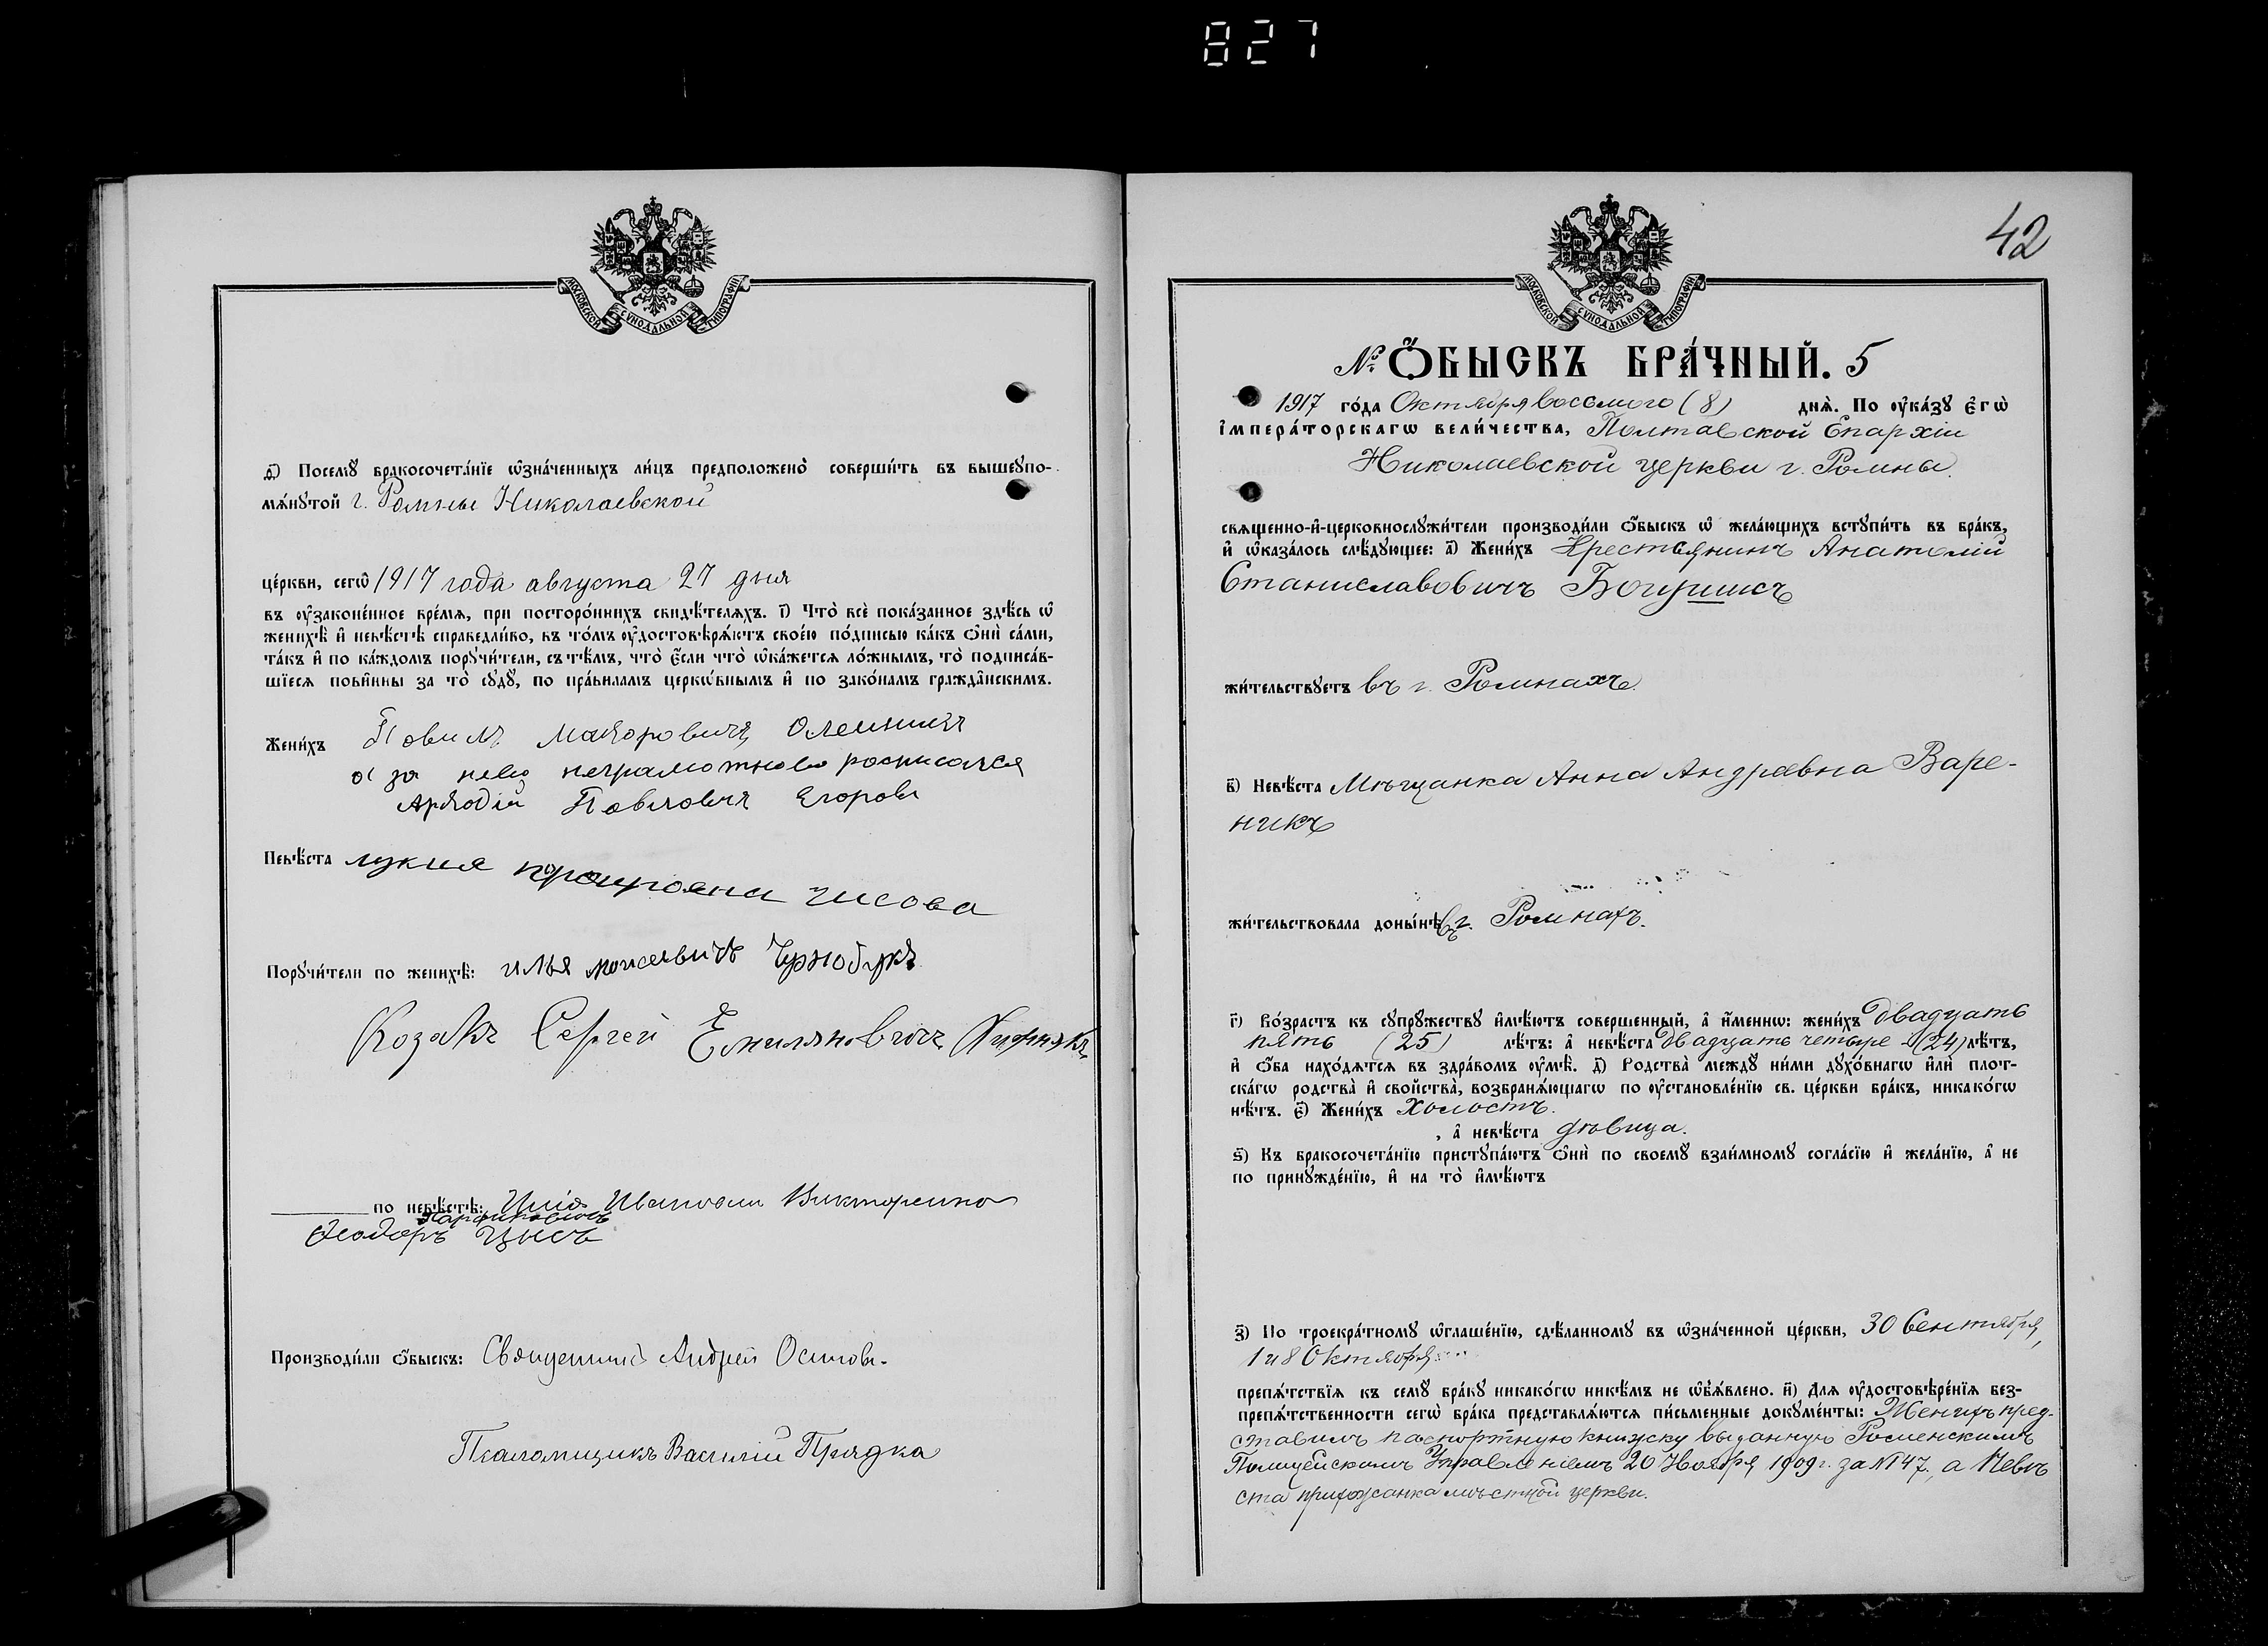 827
МОСКОВСКОЙ СѴНОДАЛЬНОЙ ТИПОГРАФІИ
д҃) Посемꙋ̀ бракосочета́нїе ѡ҆зна́ченныхъ ли́цъ предположено̀ соверши́ть въ вышеꙋпо-
мѧ́нꙋтой г. Ромны Николаевской
це́ркви, сегѡ̀ 1917 года августа 27 дня
въ ᲂу҆зако́ненное вре́мѧ, при посторо́ннихъ свидѣ́телѧхъ. і҃) Что̀ всѐ пока́занное здѣ́сь ѡ҆
женихѣ̀ и҆ невѣ́стѣ справедли́во, въ то́мъ ᲂу҆достовѣрѧ́ютъ свое́ю по́дписью ка́къ ѻ҆нѝ са́ми,
та́къ и҆ по ка́ждомъ порꙋчи́тели, съ тѣ́мъ, что̀ є҆́сли что̀ ѡ҆ка́жетсѧ ло́жнымъ, то̀ подписа́в-
шїесѧ пови́нны за то̀ сꙋдꙋ̀, по пра́виламъ церкѡ́внымъ и҆ по зако́намъ гражда̑нскимъ.
Жени́хъ Повилъ Олейникъ
а за него неграмотного росписался
Павловичъ Егоровъ
Невѣ́ста лукия чисова
Порꙋчи́тели по женихѣ̀: илья моисеевичъ
Козакъ Сергей Емиляновичъ
по невѣ́стѣ: Илія Ивановъ Викторенко
Парфиновичъ
Ѳеодоръ Цысъ
Производи́ли ѻ҆́быскъ: Священникъ Андрей Осиповъ.
Псаломщикъ Василій Прядка
42
МОСКОВСКОЙ СѴНОДАЛЬНОЙ ТИПОГРАФІИ
№ Ѻ҆́БЫСКЪ БРА́ЧНЫЙ. 5
1917 го́да Октября восьмого (8) днѧ̀. По ᲂу҆ка́зꙋ є҆гѡ̀
і҆мпера́торскагѡ вели́чества, Полтавской Епархіи
Николаевской церкви г. Ромны.
свѧщенно-и҆-церковнослꙋжи́тели производи́ли ѻ҆́быскъ ѡ҆ жела́ющихъ встꙋпи́ть въ бра́къ,
и҆ ѡ҆каза́лось слѣ́дꙋющее: а҃) Жени́хъ Крестьянинъ Анатолій
Станиславовичъ Богушисъ
жи́тельствꙋетъ въ г. Ромнахъ.
в҃) Невѣ́ста Мѣщанка Анна Андреевна Варе-
никъ
жи́тельствовала доны́нѣ въ г. Ромнахъ.
г҃) Во́зрастъ къ сꙋпрꙋ́жествꙋ и҆мѣ́ютъ совершенный, а҆ и҆́менно: жени́хъ двадцать
пять (25) лѣ́тъ: а҆ невѣ́ста двадцать четыре (24) лѣ́тъ,
и҆ ѻ҆́ба нахо́дѧтсѧ въ здра́вомъ ᲂу҆мѣ̀. д҃) Родства̀ междꙋ̀ ни́ми дꙋхо́внагѡ и҆лѝ плот-
ска́гѡ родства̀ и҆ сво́йства, возбранѧ́ющагѡ по ᲂу҆становле́нїю св. це́ркви бра́къ, никако́гѡ
нѣ́тъ. є҃) Жени́хъ холостъ.
, а҆ невѣ́ста дѣвица.
ѕ҃) Къ бракосочета́нїю пристꙋпа́ютъ ѻ҆нѝ по своемꙋ̀ взаи́мномꙋ согла́сїю и҆ жела́нїю, а҆ не
по принꙋжде́нїю, и҆ на то̀ и҆мѣ́ютъ
з҃) По троекра́тномꙋ ѡ҆глаше́нїю, сдѣ́ланномꙋ въ ѡ҆зна́ченной це́ркви, 30 Сентября,
1 и 8 Октября
препѧ́тствїѧ къ семꙋ̀ бра́кꙋ никако́гѡ никѣ́мъ не ѡ҆б̾ѧ́влено. и҃) Для ᲂу҆достовѣре́нїѧ без-
препѧ́тственности сегѡ̀ бра́ка представлѧ́ютсѧ пи́сьменные докꙋме́нты: Женихъ пред-
ставилъ паспортную книжку выданную Роменскимъ
Полицейскимъ Управленіемъ 20 Ноября 1909 г. за № 147, а Невѣ
ста прихожанка мѣстной церкви.